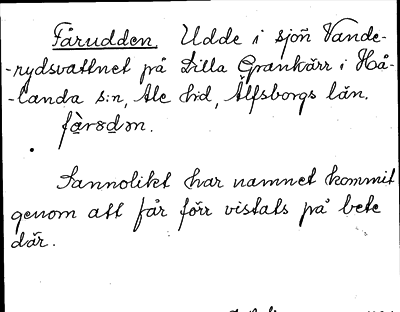 Fårudden. Udde i sjön Vande-
-rydsvattnet på Lilla Grankärr i Hå-
-landa s:n, Ale hd, Älfsborgs län.
fàrɷdən.
Sannolikt har namnet kommit
genom att får förr vistats på bete
där.